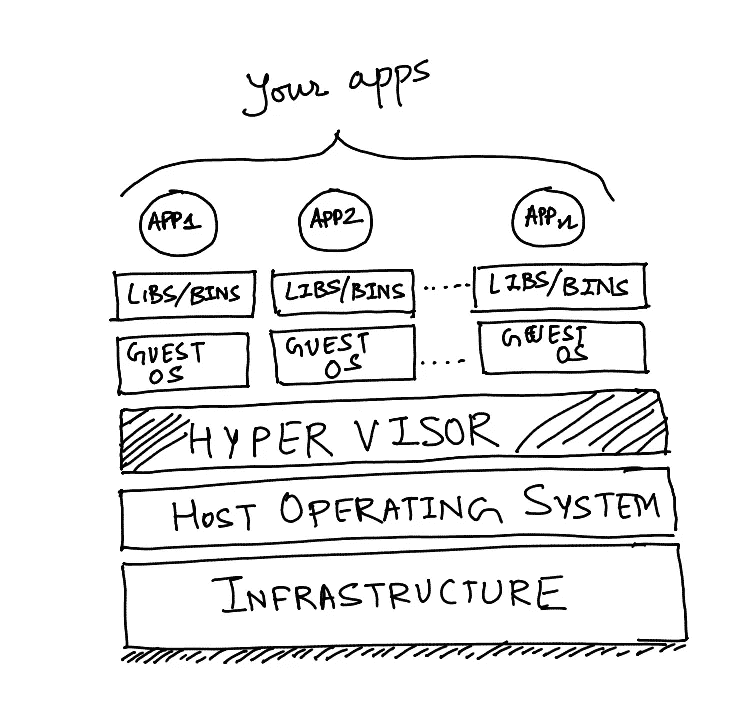 Your apps
APP1 APP2 APPn
LIBS/BINS LIBS/BINS ..... LIBS/BINS
GUEST GUEST GUEST
OS OS .... OS
HYPER VISOR
HOST OPERATING SYSTEM
INFRASTRUCTURE